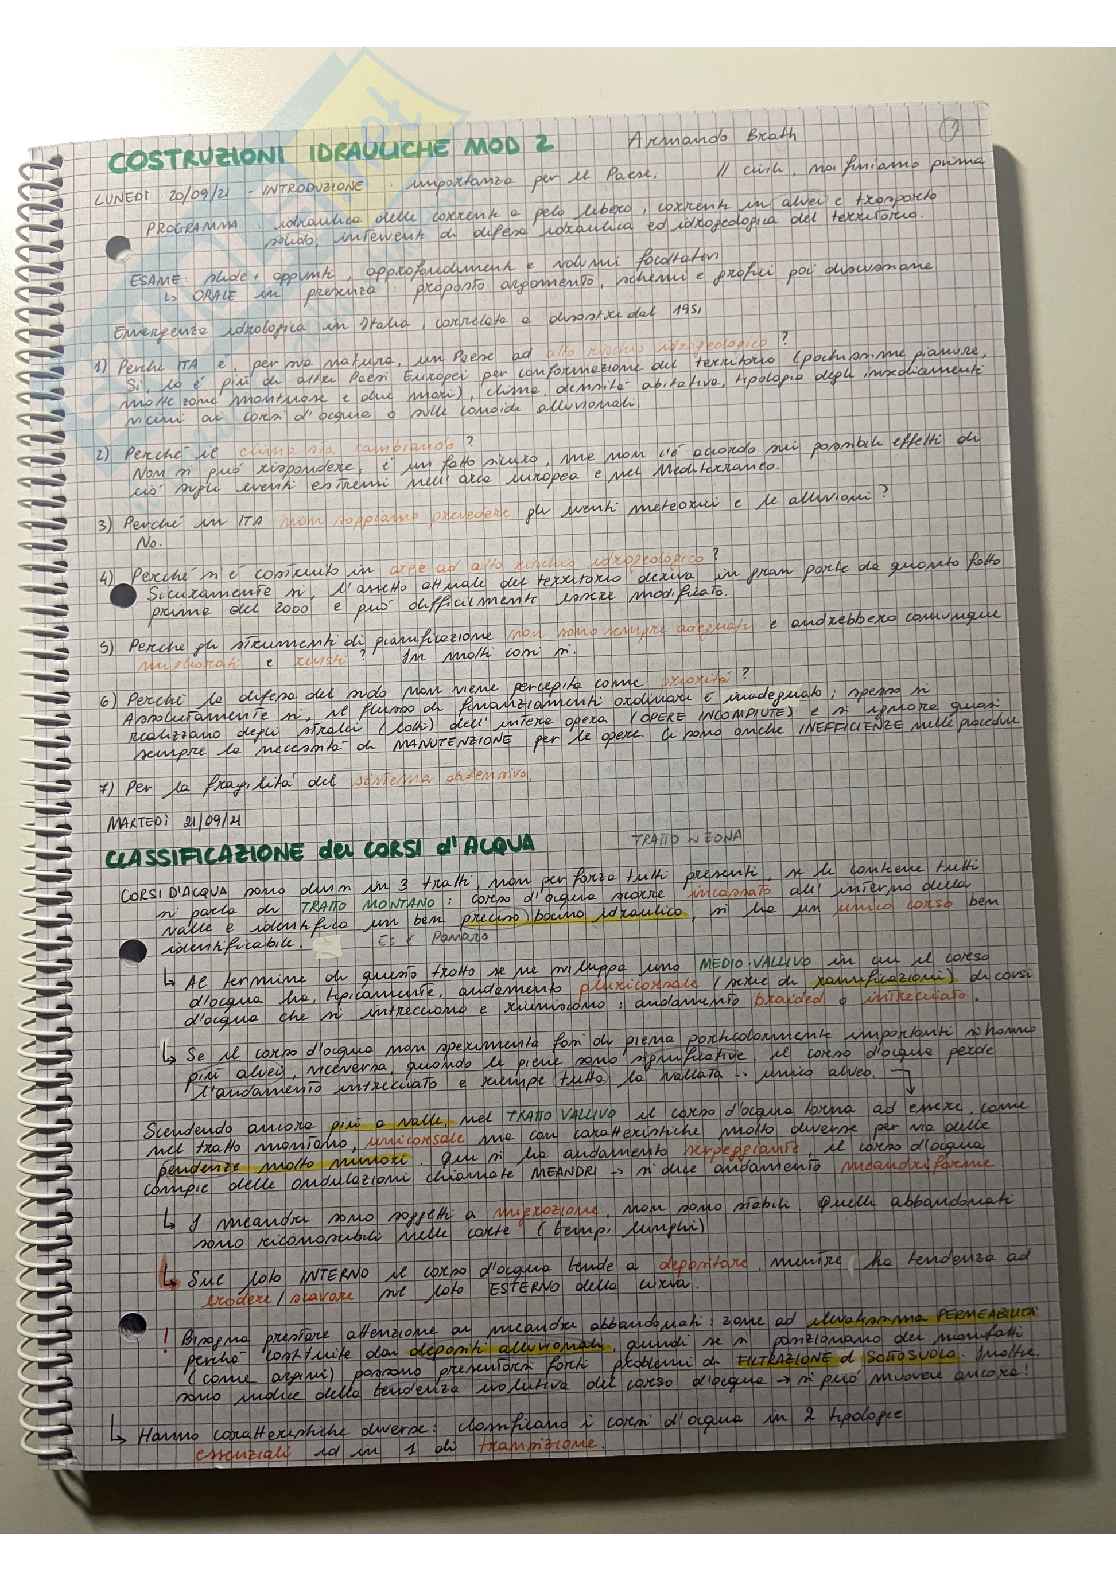 COSTRUZIONI IDRAULICHE MOD 2 Armando Brath 1
LUNEDÌ 20/09/21 - INTRODUZIONE : importanza per il Paese. // civili, noi finiamo prima
PROGRAMMA : idraulica delle correnti a pelo libero, correnti in alvei e trasporto
solido, interventi di difesa idraulica ed idrogeologica del territorio.
ESAME: slide + appunti, approfondimenti e volumi facoltativi
↳ ORALE in presenza : proposto argomento, schemi e grafici poi discussione
Emergenza idrologica in Italia, correlata a disastri dal 1951
1) Perché ITA è, per sua natura, un Paese ad alto rischio idrogeologico ?
Sì lo è più di altri Paesi Europei per conformazione del territorio (pochissime pianure,
molte zone montuose e due mari), clima, densità abitativa, tipologia degli insediamenti
vicini ai corsi d'acqua o sulle conoidi alluvionali.
2) Perché il clima sta cambiando ?
Non si può rispondere, è un fatto sicuro, ma non c'è accordo sui possibili effetti di
ciò sugli eventi estremi nell'area europea e nel Mediterraneo.
3) Perché in ITA non sappiamo prevedere gli eventi meteorici e le alluvioni ?
No.
4) Perché si è costruito in aree ad alto rischio idrogeologico ?
Sicuramente sì, l'assetto attuale del territorio deriva in gran parte da quanto fatto
prima del 2000 e può difficilmente essere modificato.
5) Perché gli strumenti di pianificazione non sono sempre adeguati e andrebbero comunque
migliorati e rivisti ? In molti casi sì.
6) Perché la difesa del suolo non viene percepita come priorità ?
Assolutamente sì, il flusso di finanziamenti ordinari è inadeguato; spesso si
realizzano degli stralci (lotti) dell'intera opera (OPERE INCOMPIUTE) e si ignora quasi
sempre la necessità di MANUTENZIONE per le opere. Ci sono anche INEFFICIENZE nelle procedure
7) Per la fragilità del sistema difensivo.
MARTEDÌ 21/09/21
CLASSIFICAZIONE dei CORSI d'ACQUA TRATTO ~ ZONA
CORSI D'ACQUA sono divisi in 3 tratti, non per forza tutti presenti, se li contiene tutti
si parla di TRATTO MONTANO : corso d'acqua scorre incassato all'interno della
valle e identifica un ben preciso bacino idraulico. Si ha un unico corso ben
identificabile. Panaro
↳ Al termine di questo tratto se ne sviluppa uno MEDIO-VALLIVO in cui il corso
d'acqua ha, tipicamente, andamento pluricorsale (serie di ramificazioni) di corsi
d'acqua che si intrecciano e riuniscono : andamento braided o intrecciato.
↳ Se il corso d'acqua non sperimenta fasi di piena particolarmente importanti si hanno
più alvei, viceversa, quando le piene sono significative, il corso d'acqua perde
l'andamento intrecciato e riempe tutta la vallata → unico alveo.
Scendendo ancora più a valle, nel TRATTO VALLIVO il corso d'acqua torna ad essere, come
nel tratto montano, unicorsale ma con caratteristiche molto diverse per via delle
pendenze molto minori. Qui si ha andamento serpeggiante, il corso d'acqua
compie delle ondulazioni chiamate MEANDRI → si dice andamento meandriforme
↳ I meandri sono soggetti a migrazione, non sono stabili. Quelli abbandonati
sono riconoscibili nelle carte (tempi lunghi)
↳ Sul lato INTERNO il corso d'acqua tende a depositare, mentre ha tendenza ad
erodere / scavare sul lato ESTERNO della curva.
! Bisogna prestare attenzione ai meandri abbandonati : zone ad elevatissima PERMEABILITÀ
perché costituite dai depositi alluvionali, quindi se si posizionano dei manufatti
(come argini) possono presentarsi forti problemi di FILTRAZIONE di SOTTOSUOLO. Inoltre
sono indice della tendenza evolutiva del corso d'acqua → si può muovere ancora!
↳ Hanno caratteristiche diverse : classificano i corsi d'acqua in 2 tipologie
essenziali ed in 1 di transizione.